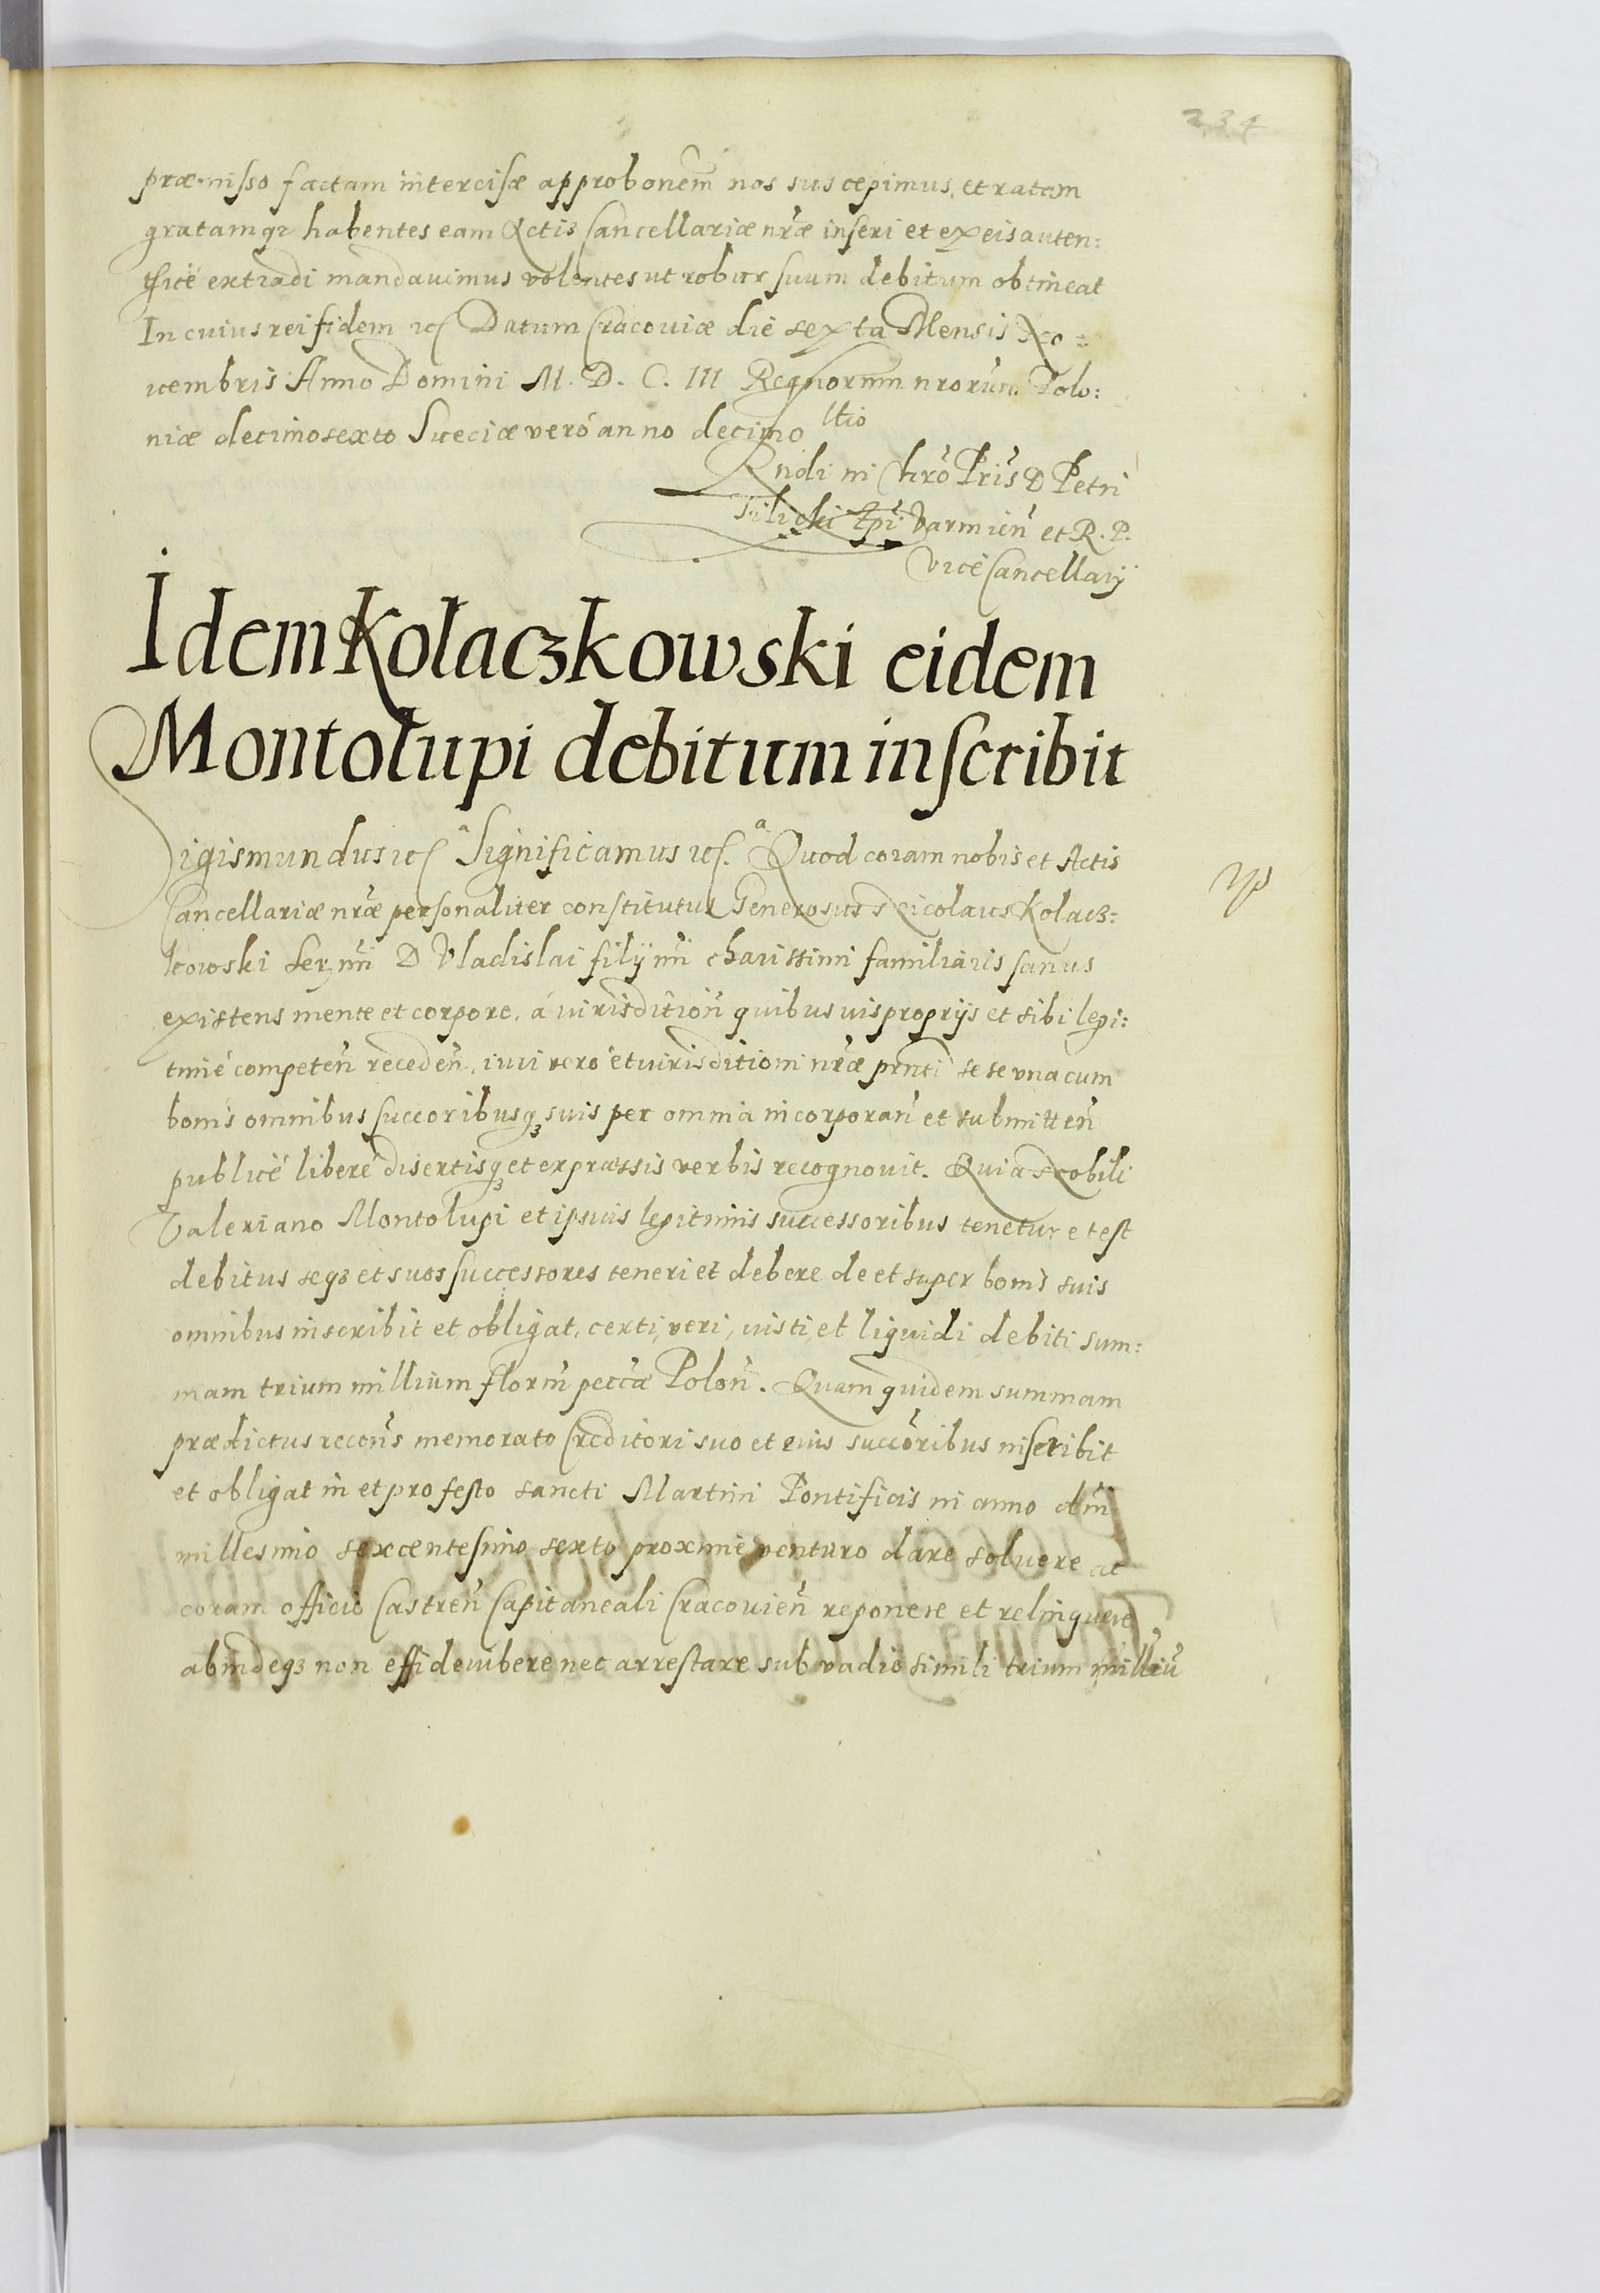 234
præmisso factam intercisæ approbonem̃ nos suscepimus, et ratam
gratamq3 habentes eam Actis Cancellariæ nræ inseri et ex eis auten:
ticè extradi mandavimus volentes ut robur suum debitum obtineat
In cuius rei fidem etc Datum Cracoviæ die sexta Mensis No:
vembris Anno Domini M. D. C. III Regnorum nrorum Polo:
niæ decimosexto Sveciæ verò anno decimo
Rltio
Rndi in Chro Pris D Petri
Tilicki Epi Varmien et R. P.
Vice Cancellarij
Idem Kołaczkowski eidem
Montolupi debitum inscribit
Sigismundus etc Significamus etc. Quod coram nobis et Actis
Cancellariæ nræ personaliter constitutus Generosus Nicolaus Kołacz:
kowski Sermi D Vladislai filij nri charissimi familiaris sanus
existens mente et corpore, à iurisdition quibusvis proprijs et sibi legi:
timè competen receden, iuri verò et iurisditioni nræ prnti sese una cum
bonis omnibus succoribusq3 suis per omnia incorporan et submitten
publicè liberè disertisq3 et expræssis verbis recognovit. Quia Nobili
Valeriano Montolupi et ipsius legitimis successoribus tenetur et est
debitus seq3 et suos successores teneri et debere de et super bonis suis
omnibus inscribit et obligat, certi, veri, iusti, et liquidi debiti sum:
mam trium millium florm peccæ Polon. Quam quidem summam
prædictus recons memorato Creditori suo et eius succoribus inscribit
et obligat in et pro festo sancti Martini Pontificis in anno dni
millesimo sexcentesimo sexto proximè venturo dare solvere ac
coram officio Castren Capitaneali Cracovien reponere et relinquere
abindeq3 non effideiubere nec arrestare sub vadio simili trium milliu